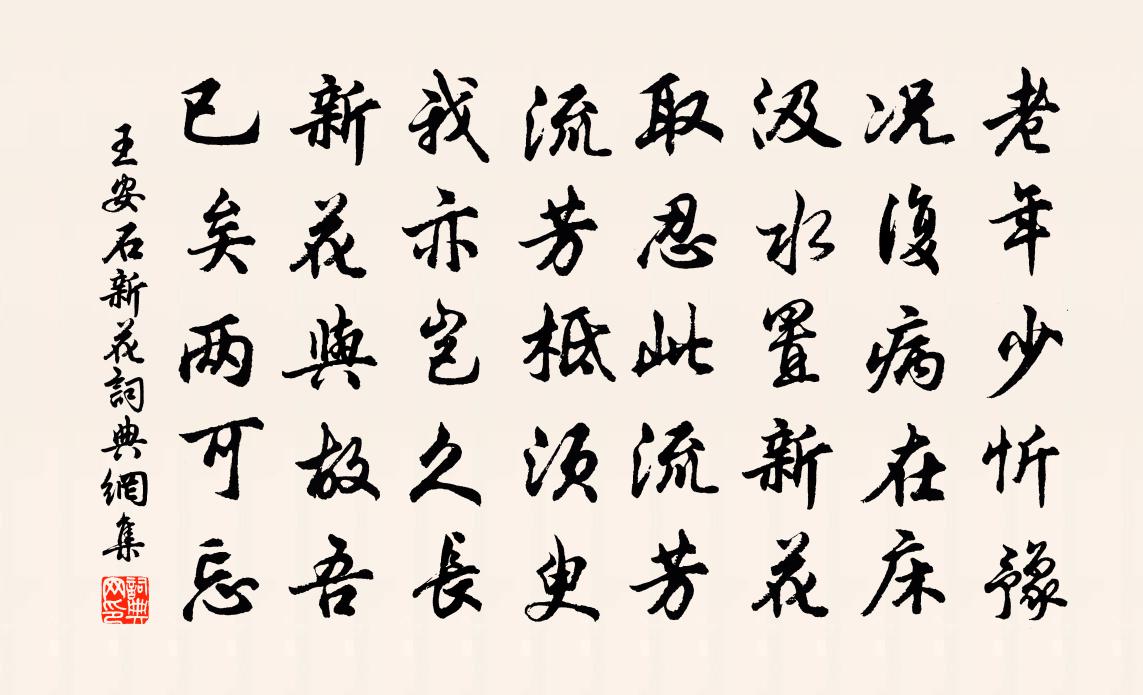 老年少忻豫
况復病在床
汲水置新花
取忍此流芳
流芳柢須臾
我亦豈久長
新花與故吾
已矣两可忘
王安石新花詞典網集
詞典网印